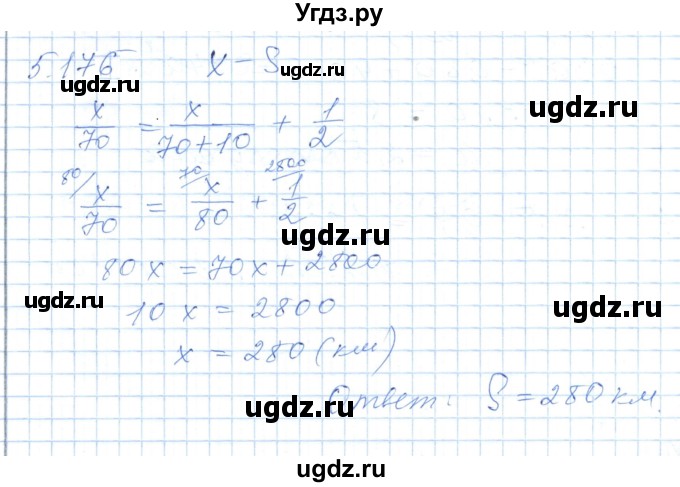 Угдз.ру
5.176 x - S
x/70 = x/(70+10) + 1/2
80/ x/70 = 70/ x/80 + 2800/ 1/2
ugdz.ru ugdz.ru
ugdz.ru
80x = 70x + 2800
ugdz.ru ugdz.ru
10x = 2800
x = 280 (км)
ugdz.ru ugdz.ru
Ответ: S = 280 км.
ugdz.ru
ugdz.ru